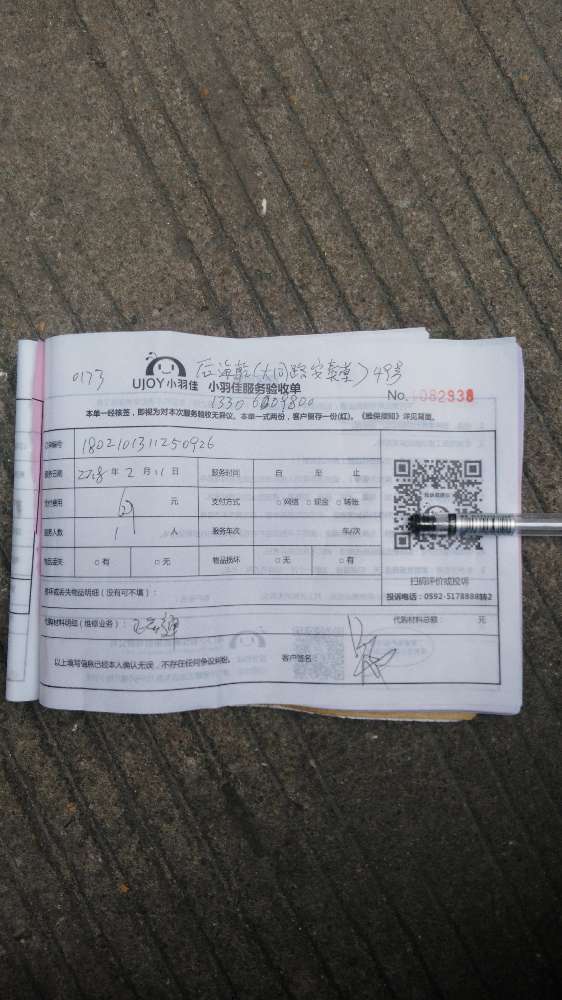 0173
UJOY小羽佳 小羽佳服务验收单
No. 1082938
本单一经核签，即视为对本次服务验收无异议。本单一式两份，客户留存一份(红)。《维保须知》详见背面。
订单编号 1802101311250926
服务日期 2018 年 2 月 11 日 服务时间 自 至 止
支付费用 元 支付方式 □网络 □现金 □转账
服务人数 1 人 服务车次 车/次
物品丢失 □有 □无 物品损坏 □无 □有
扫码评价或投诉
投诉电话：0592-5178888转2
损坏或丢失物品明细（没有可不填）：
代购材料明细（维修业务）： 代购材料总额： 元
以上填写信息已经本人确认无误，不存在任何争议纠纷。 客户签名：